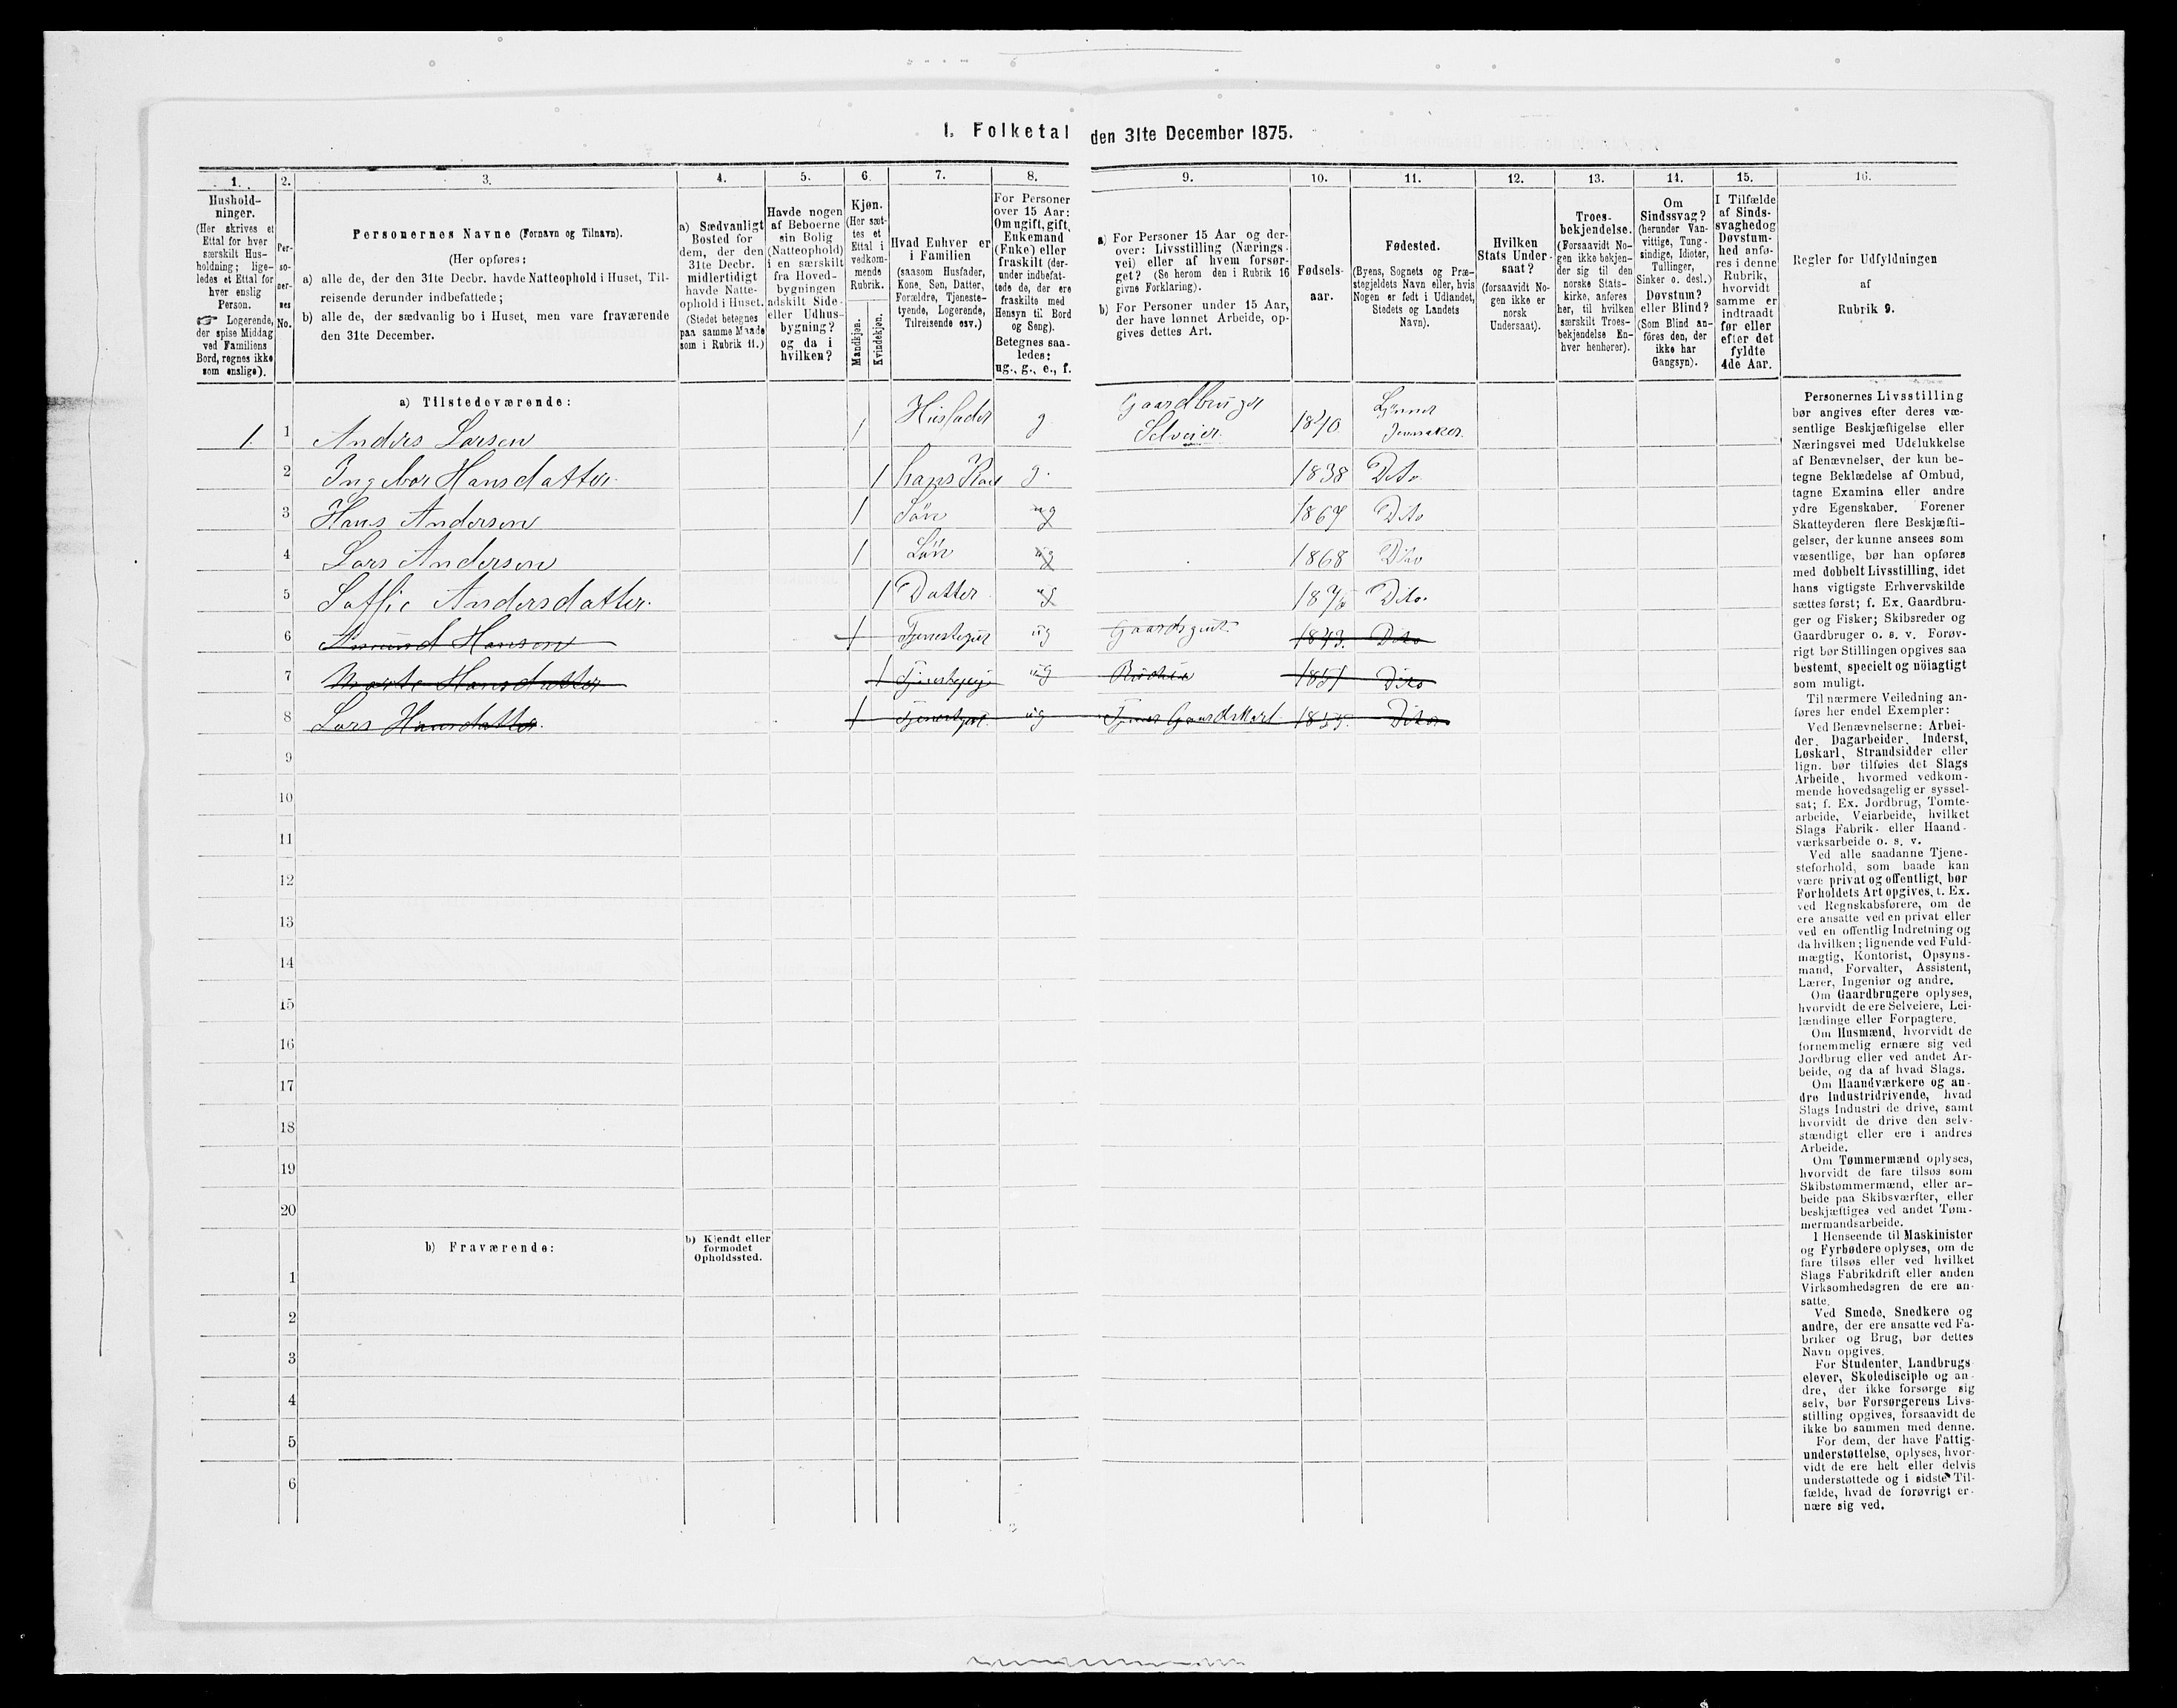 I. Folketal den 31te December 1875.
1.
Hushold-
ninger.
(Her skrives et
Ettal for hver
særskilt Hus-
holdning; lige-
ledes et Ettal for
hver enslig
Person.
☞ Logerende,
der spise Middag
ved Familiens
Bord, regnes ikke
som enslige).
2.
Per-
so-
ner-
nes
No.
3.
Personernes Navne (Fornavn og Tilnavn).
(Her opføres:
a) alle de, der den 31te Decbr. havde Natteophold i Huset, Til-
reisende derunder indbefattede;
b) alle de, der sædvanlig bo i Huset, men vare fraværende
den 31te December.
4.
a) Sædvanligt
Bosted for
dem, der den
31te Decbr.
midlertidigt
havde Natte-
ophold i Huset.
(Stedet betegnes
paa samme Maade
som i Rubrik 11.)
5.
Havde nogen
af Beboerne
sin Bolig
(Natteophold)
i en særskilt
fra Hoved-
bygningen
adskilt Side-
eller Udhus-
bygning?
og da i
hvilken?
6.
Kjøn.
(Her sæt-
tes et
Ettal i
vedkom-
mende
Rubrik.
Mandkjøn.
Kvindekjøn.
7.
Hvad Enhver er
i Familien
(saasom Husfader,
Kone, Søn, Datter,
Forældre, Tjeneste-
tyende, Logerende,
Tilreisende osv.)
8.
For Personer
over 15 Aar:
Om ugift, gift,
Enkemand
(Enke) eller
fraskilt (der-
under indbefat-
tede de, der ere
fraskilte med
Hensyn til Bord
og Seng).
Betegnes saa-
ledes:
ug., g., e., f.
9.
a) For Personer 15 Aar og der-
over: Livsstilling (Nærings-
vei) eller af hvem forsør-
get? (Se herom den i Rubrik 16
givne Forklaring).
b) For Personer under 15 Aar,
der have lønnet Arbeide, op-
gives dettes Art.
10.
Fødsels-
aar.
11.
Fødested.
(Byens, Sognets og Præ-
stegjeldets Navn eller, hvis
Nogen er født i Udlandet,
Stedets og Landets
Navn).
12.
Hvilken
Stats Under-
saat?
(forsaavidt No-
gen ikke er
norsk
Undersaat).
13.
Troes-
bekjendelse.
(Forsaavidt No-
gen ikke bekjen-
der sig til den
norske Stats-
kirke, anføres
her, til hvilken
særskilt Troes-
bekjendelse En-
hver henhører).
14.
Om
Sindssvag?
(herunder Van-
vittige, Tung-
sindige, Idioter,
Tullinger,
Sinker o. desl.)
Døvstum?
eller Blind?
(Som Blind an-
föres den, der
ikke har
Gangsyn).
15.
I Tilfælde
af Sinds-
svaghed og
Døvstum-
hed anfø-
res i denne
Rubrik,
hvorvidt
samme er
indtraadt
før eller
efter det
fyldte
4de Aar.
16.
Regler for Udfyldningen
af
Rubrik 9.
a) Tilstedeværende:
1 1 Anders Larsen 1 Husfader g Gaardbruger Selveier. 1840
2 Ingebor Hansdatter 1 hans Kone g. 1838 Dito
3 Hans Andersen 1 Søn ug 1867 Dito
4 Lars Andersen 1 Søn ug 1868 Dito
5 Datter ug Dito
6 Amund Hansen 1 ug Gaardsgut 1843 Dito
7 Marte Hansdatter 1 ug 1851 Dito
8 Lars Hansdatter 1 ug Dito
9
10
11
12
13
14
15
16
17
18
19
20
b) Fraværende:
b) Kjendt eller
formodet
Opholdssted.
1
2
3
4
5
6
Personernes Livsstilling
bør angives efter deres væ-
sentlige Beskjæftigelse eller
Næringsvei med Udelukkelse
af Benævnelser, der kun be-
tegne Beklædelse af Ombud,
tagne Examina eller andre
ydre Egenskaber. Forener
Skatteyderen flere Beskjæfti-
gelser, der kunne ansees som
væsentlige, bør han opføres
med dobbelt Livsstilling, idet
hans vigtigste Erhvervskilde
sættes først; f. Ex. Gaardbru-
ger og Fisker; Skibsreder og
Gaardbruger o. s. v. Forøv-
rigt bør Stillingen opgives saa
bestemt, specielt og nöiagtigt
som muligt.
Til nærmere Veiledning an-
føres her endel Exempler:
Ved Benævnelserne: Arbei-
der, Dagarbeider, Inderst,
Løskarl, Strandsidder eller
lign. bør tilføies det Slags
Arbeide, hvormed vedkom-
mende hovedsagelig er syssel-
sat; f. Ex. Jordbrug, Tomte-
arbeide, Veiarbeide, hvilket
Slags Fabrik- eller Haand-
værksarbeide o. s. v.
Ved alle saadanne Tjene-
steforhold, som baade kan
være privat og offentligt, bør
Forholdets Art opgives, t. Ex.
ved Regnskabsførere, om de
ere ansatte ved en privat eller
ved en offentlig Indretning og
da hvilken; lignende ved Fuld-
mægtig, Kontorist, Opsyns-
mand, Forvalter, Assistent,
Lærer, Ingeniør og andre.
Om Gaardbrugere oplyses,
hvorvidt de ere Selveiere, Lei-
lændinge eller Forpagtere.
Om Husmænd, hvorvidt de
fornemmelig ernære sig ved
Jordbrug eller ved andet Ar-
beide, og da af hvad Slags.
Om Haandværkere og an-
dre Industridrivende, hvad
Slags Industri de drive, samt
hvorvidt de drive den selv-
stændigt eller ere i andres
Arbeide.
Om Tømmermænd oplyses,
hvorvidt de fare tilsøs som
Skibstømmermænd, eller ar-
beide paa Skibsværfter, eller
beskjæftiges ved andet Tøm-
mermandsarbeide.
I Henseende til Maskinister
og Fyrbødere oplyses, om de
fare tilsøs eller ved hvilket
Slags Fabrikdrift eller anden
Virksomhedsgren de ere an-
satte.
Ved Smede, Snedkere og
andre, der ere ansatte ved Fa-
briker og Brug, bør dettes
Navn opgives.
For Studenter, Landbrugs-
elever, Skoledisciple og an-
dre, der ikke forsørge sig
selv, bør Forsørgerens Livs-
stilling opgives, forsaavidt de
ikke bo sammen med denne.
For dem, der have Fattig-
understøttelse, oplyses, hvor-
vidt de ere helt eller delvis
understøttede og i sidste Til-
fælde, hvad de forøvrigt er-
nære sig ved.